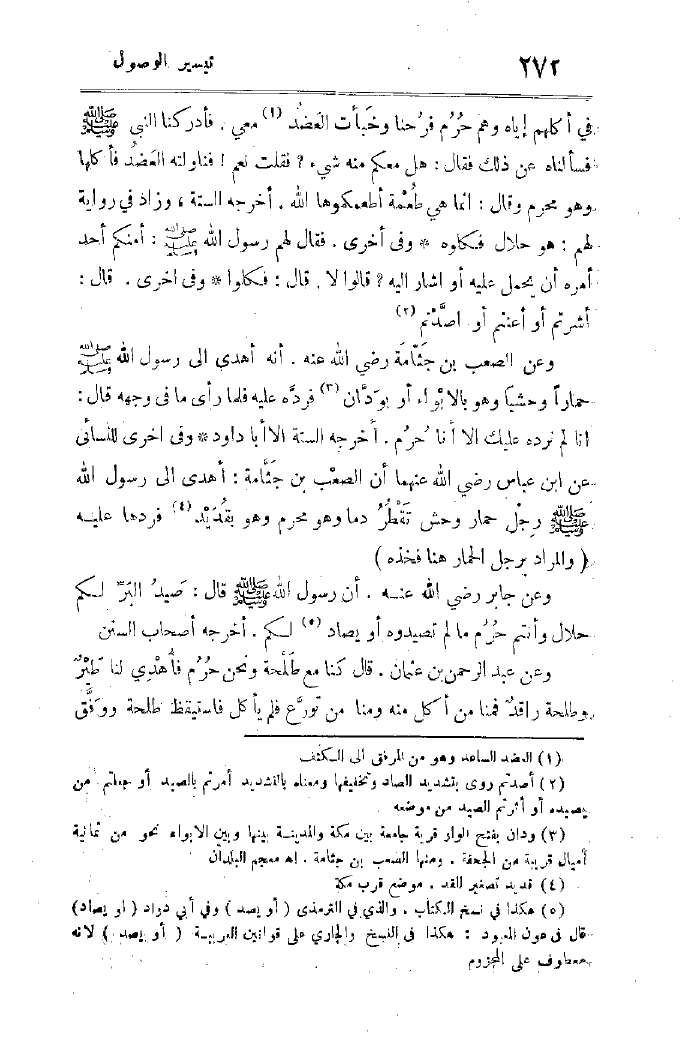 ٢٧٢ تيسير الوصول
في أكلهم إياه وهم حُرُم فرُحنا وخَبأت العَضُد (١) معي . فأدركنا النبي ﷺ
فسألناه عن ذلك فقال : هل معكم منه شيء ? فقلت نعم ! فناولته العَضُد فأكلها
وهو محرم وقال : انما هي طُعْمة أطعمكموها الله . أخرجه الستة ، وزاد في رواية
لهم : هو حلال فكلوه * وفى أخرى . فقال لهم رسول الله ﷺ : أمنكم أحد
أمره أن يحمل عليه أو اشار اليه ? قالوا لا . قال : فكلوا * وفى اخرى . قال :
أشرتم أو أعنتم أو اصَّدْتم (٢)
وعن الصعب بن جَثَّامَة رضي الله عنه . أنه أهدى الى رسول الله ﷺ
حماراً وحشياً وهو بالابْواء أو بوَدَّان (٣) فردَّه عليه فلما رأى ما فى وجهه قال :
انا لم نرده عليك الا أنا حُرُم . أخرجه الستة الا أبا داود * وفى اخرى للنسائى
عن ابن عباس رضي الله عنهما أن الصعْب بن جَثَّامة : أهدى الى رسول الله
ﷺ رِجْل حمار وحش تَقْطُرُ دما وهو محرم وهو بقُدَيْد (٤) فردها عليه
( والمراد برجل الحمار هنا فخذه )
وعن جابر رضي الله عنه . أن رسول الله ﷺ قال : صَيدُ البَرِّ لكم
حلال وأنتم حُرُم ما لم تصيدوه أو يصاد (٥) لكم . أخرجه أصحاب السنن
وعن عبد الرحمن بن عثمان . قال كنا مع طَلْحة ونحن حُرُم فأُهْدِي لنا طَيْرٌ
وطلحة راقدٌ فمنا من أكل منه ومنا من تورَّع فلم يأكل فاستيقظ طلحة ووفَّق
(١) العضد الساعد وهو من المرفق الى الكتف
(٢) أصدتم روى بتشديد الصاد وتخفيفها ومعناه بالتشديد أمرتم بالصيد أو جعلتم من
يصيده أو أثرتم الصيد من موضعه
(٣) ودان بفتح الواو قرية جامعة بين مكة والمدينة بينها وبين الابواء نحو من ثمانية
أميال قريبة من الجحفة . ومنها الصعب بن جثامة . اه معجم البلدان
(٤) قديد تصغير القد . موضع قرب مكة
(٥) هكذا في نسخ الكتاب . والذي في الترمذى ( أو يصد ) وفي أبي دواد ( او يصاد )
قال فى عون المعبود : هكذا فى النسخ والجاري على قوانين العربية ( أو يصد ) لانه
معطوف على المجزوم